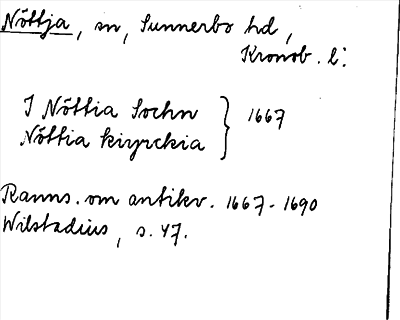 Nöttja, sn, Sunnerbo hd,
Kronob. l:
I Nöttia Sochn } 1667
Nöttia kiyrckia
Ranns. om antikv. 1667-1690
Wilstadius, s. 47.